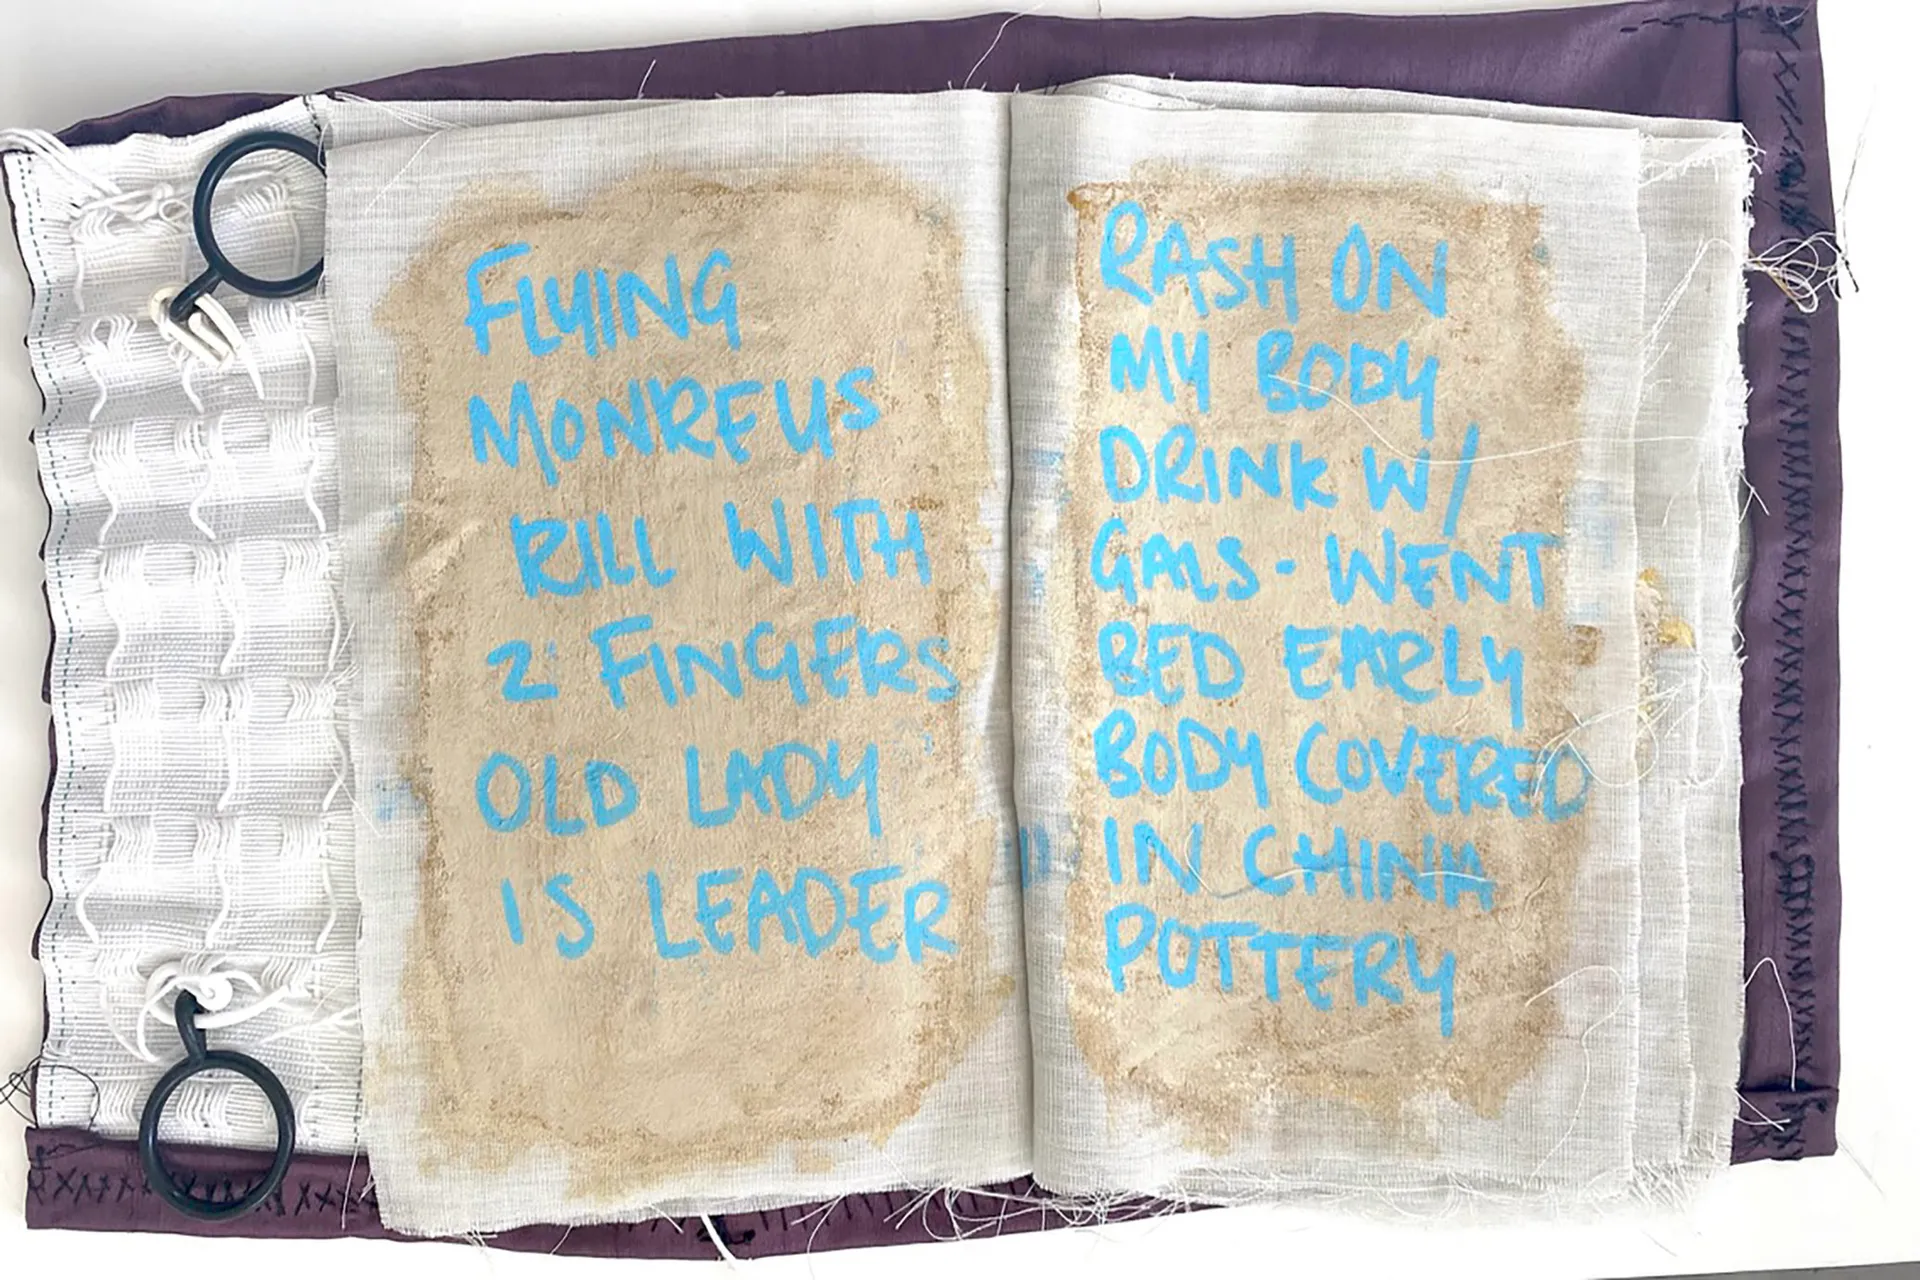 FLYING
MONREUS
KILL WITH
2 FINGERS
OLD LADY
IS LEADER
RASH ON
MY BODY
DRINK W/
GALS - WENT
BED EARLY
BODY COVERED
IN CHINA
POTTERY